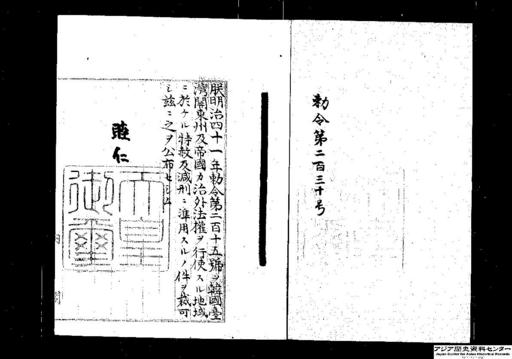 勅令第二百三十号
朕明治四十一年勅令第二百十五號ヲ韓國臺
灣關東州及帝國カ治外法權ヲ行使スル地域
ニ於ケル特赦及減刑ニ準用スルノ件ヲ裁可
シ茲ニ之ヲ公布セシム
睦仁
天皇
御璽
アジア歴史資料センター
Japan Center for Asian Historical Records